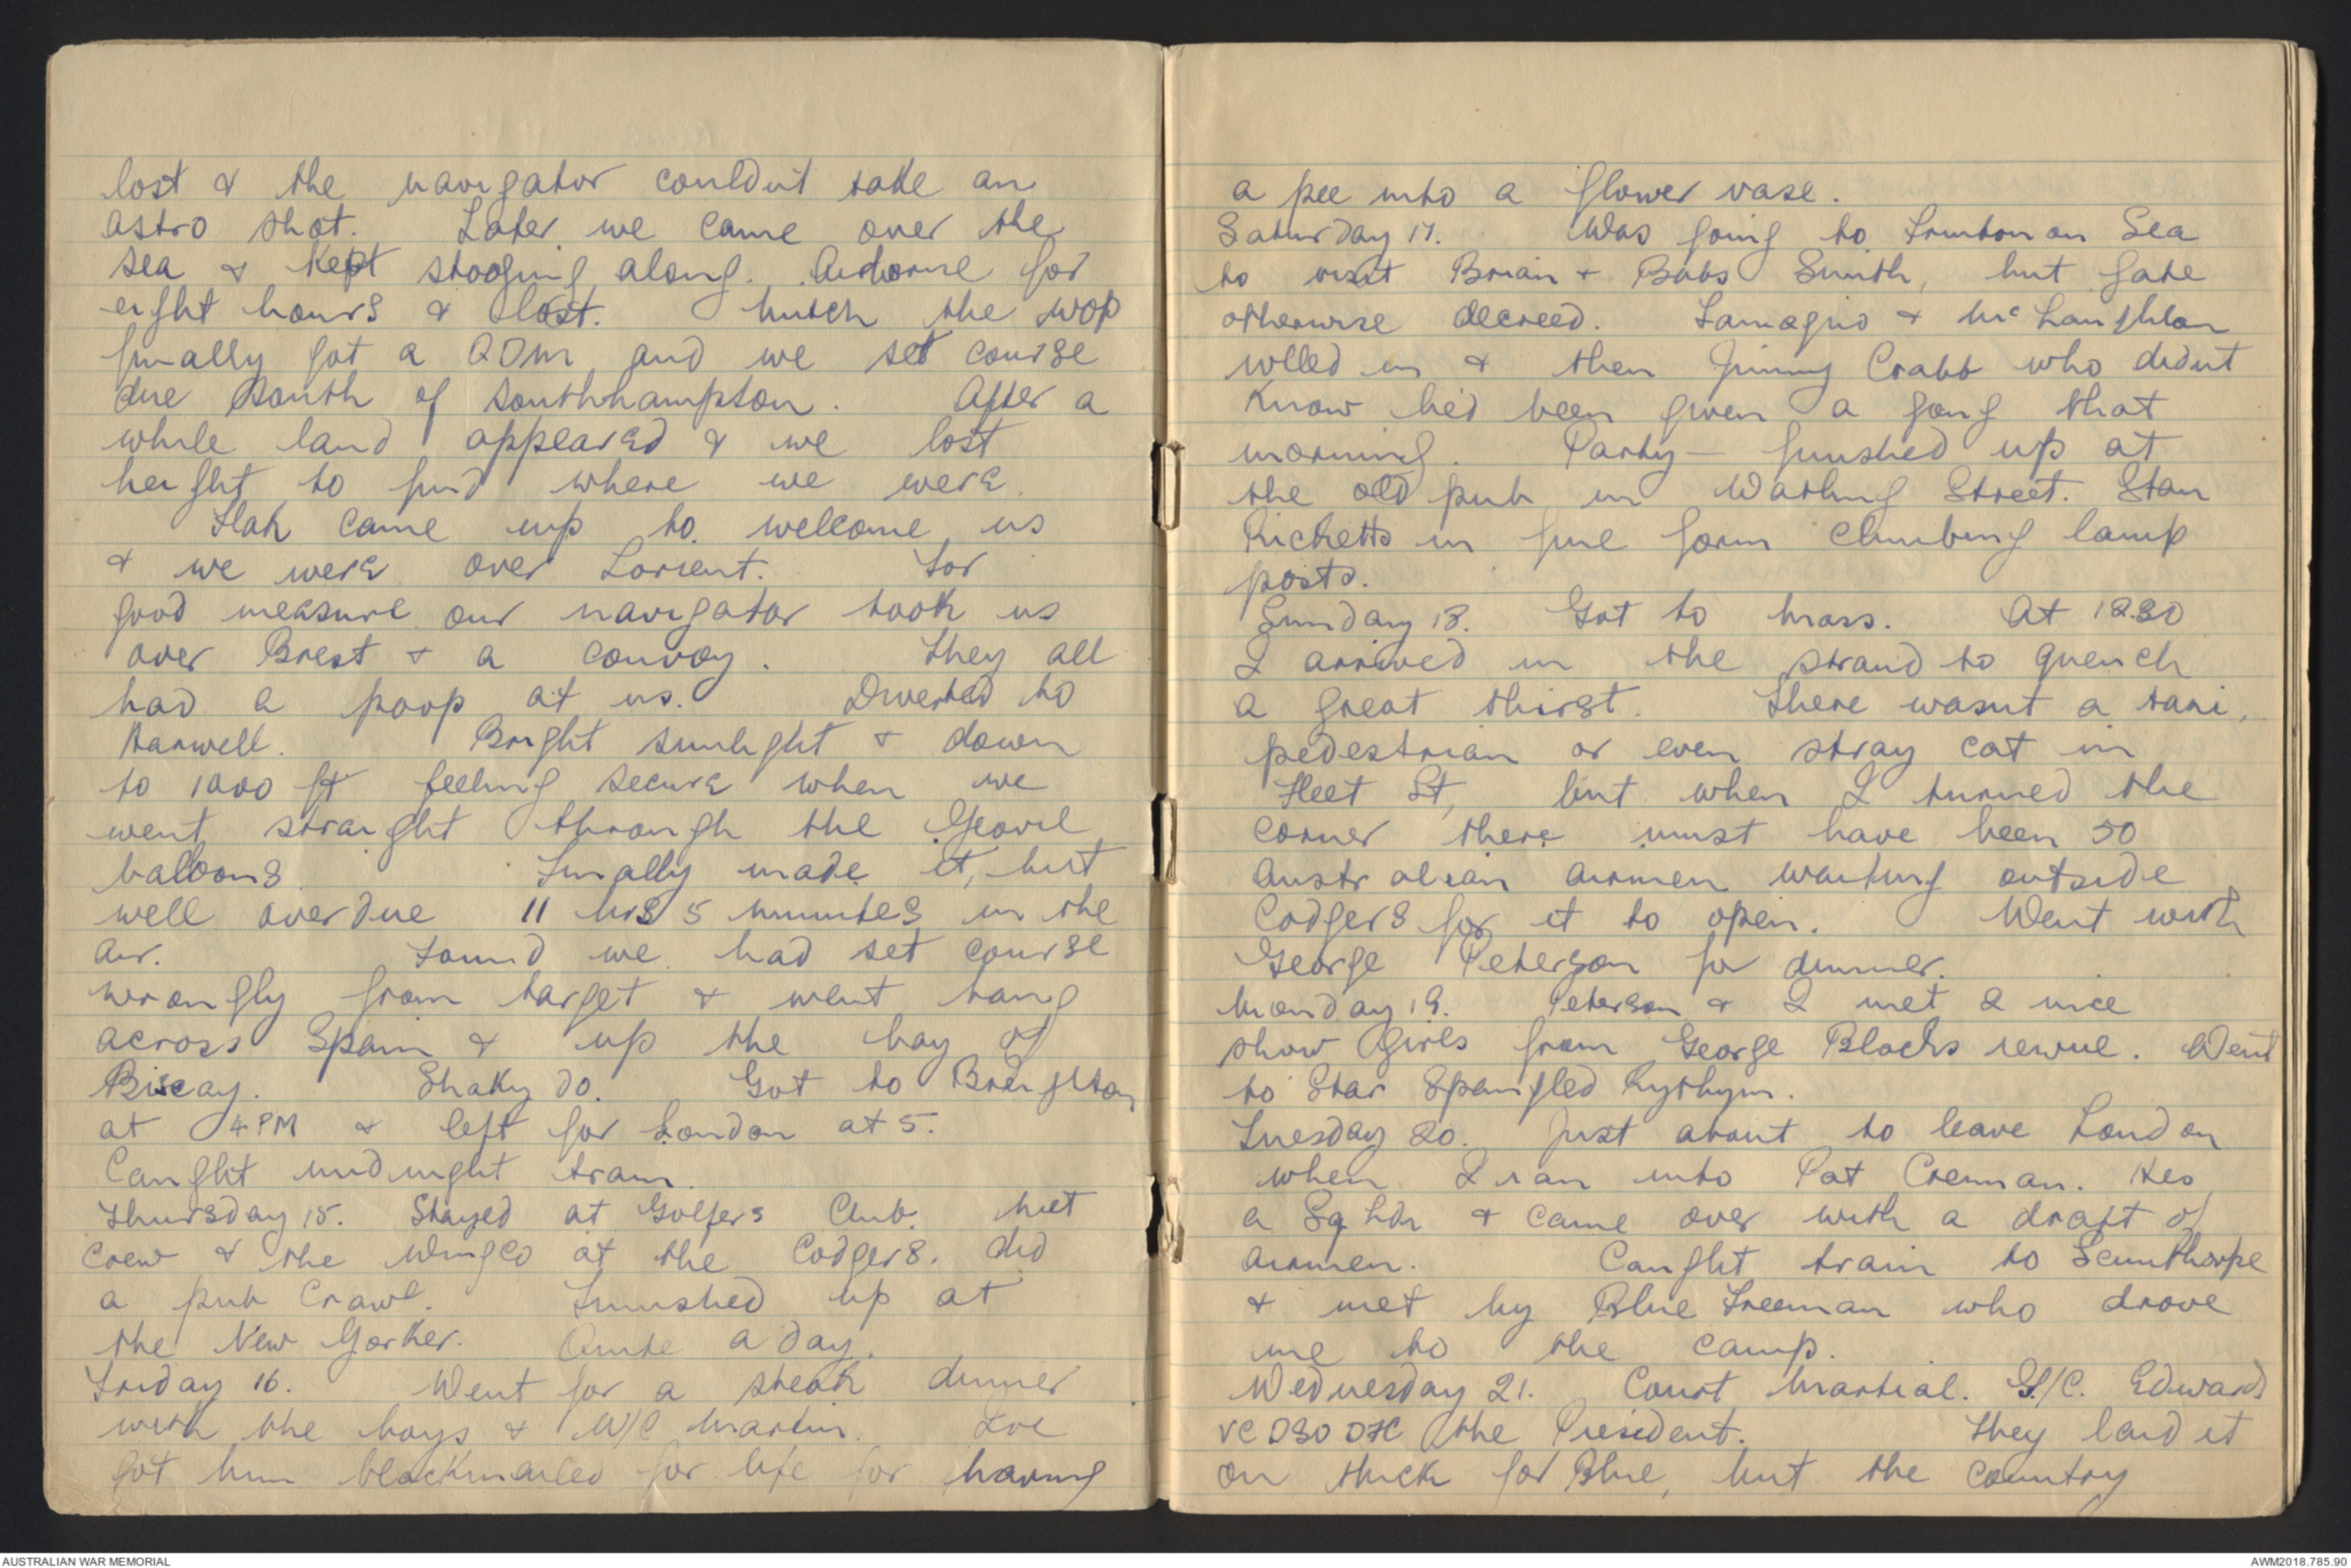 lost & the navigator couldn't take an
astro shot. Later we came over the
sea & kept stooging along. Airborne for
eight hours & lost. Hutch the WOP
finally got a QDM and we set course
due South of Southhampton. After a
while land appeared & we lost
height to find where we were.
Flak came up to welcome us
& we were over Lorient. For
good measure our navigator took us
over Brest & a convoy. They all
had a poop at us. Diverted to
Harwell. Bright sunlight & down
to 1000 ft feeling secure when we
went straight through the Yeovil
baloons Finally made it, but
well overdue 11 hrs 5 minutes in the
air. Found we had set course
wrongly from target & went bang
across Spain & up the bay of
Biscay. Shaky do. Got to Breighton
at 4 PM & left for London at 5.
Caught midnight train.
Thursday 15. Stayed at Golfers Club. Met
crew & the Wingco at the Codgers. Did
a pub crawl. Finished up at
the New Yorker. Quite a day.
Friday 16. Went for a steak dinner
with the boys & W/C Martin. Ive
got him blackmailed for life for having
a pee into a flower vase.
Saturday 17. Was going to Frinton on Sea
to visit Brian & Babs Smith, but fate
otherwise decreed. & McLaughlan
rolled in & then Jimmy Crabb who didnt
know he'd been given a gong that
morning. Party — finished up at
the old pub in Watling Street. Stan
Ricketts in fine form climbing lamp
posts.
Sunday 18. Got to Mass. At
I arrived in the strand to quench
a great thirst. There wasnt a taxi,
pedestrian or even stray cat in
Fleet St, but when I turned the
corner there must have been 50
Australian airmen waiting outside
Codgers for it to open. Went with
George Peterson for dinner.
Monday 19. Peterson & I met 2 nice
show girls from George Blacks revue. Went
to Star Spangled Rythym.
Tuesday 20. Just about to leave London
when I ran into Pat Crennan. Hes
a Sq Ldr & came over with a draft of
airmen. Caught train to Scunthorpe
& met by Blue Freeman who drove
me to the camp.
Wednesday 21. Court Martial. G/C. Edwards
VC DSO DFC the President. They laid it
on thick for Blue, but the country
AUSTRALIAN WAR MEMORIAL
AWM2018.785.90